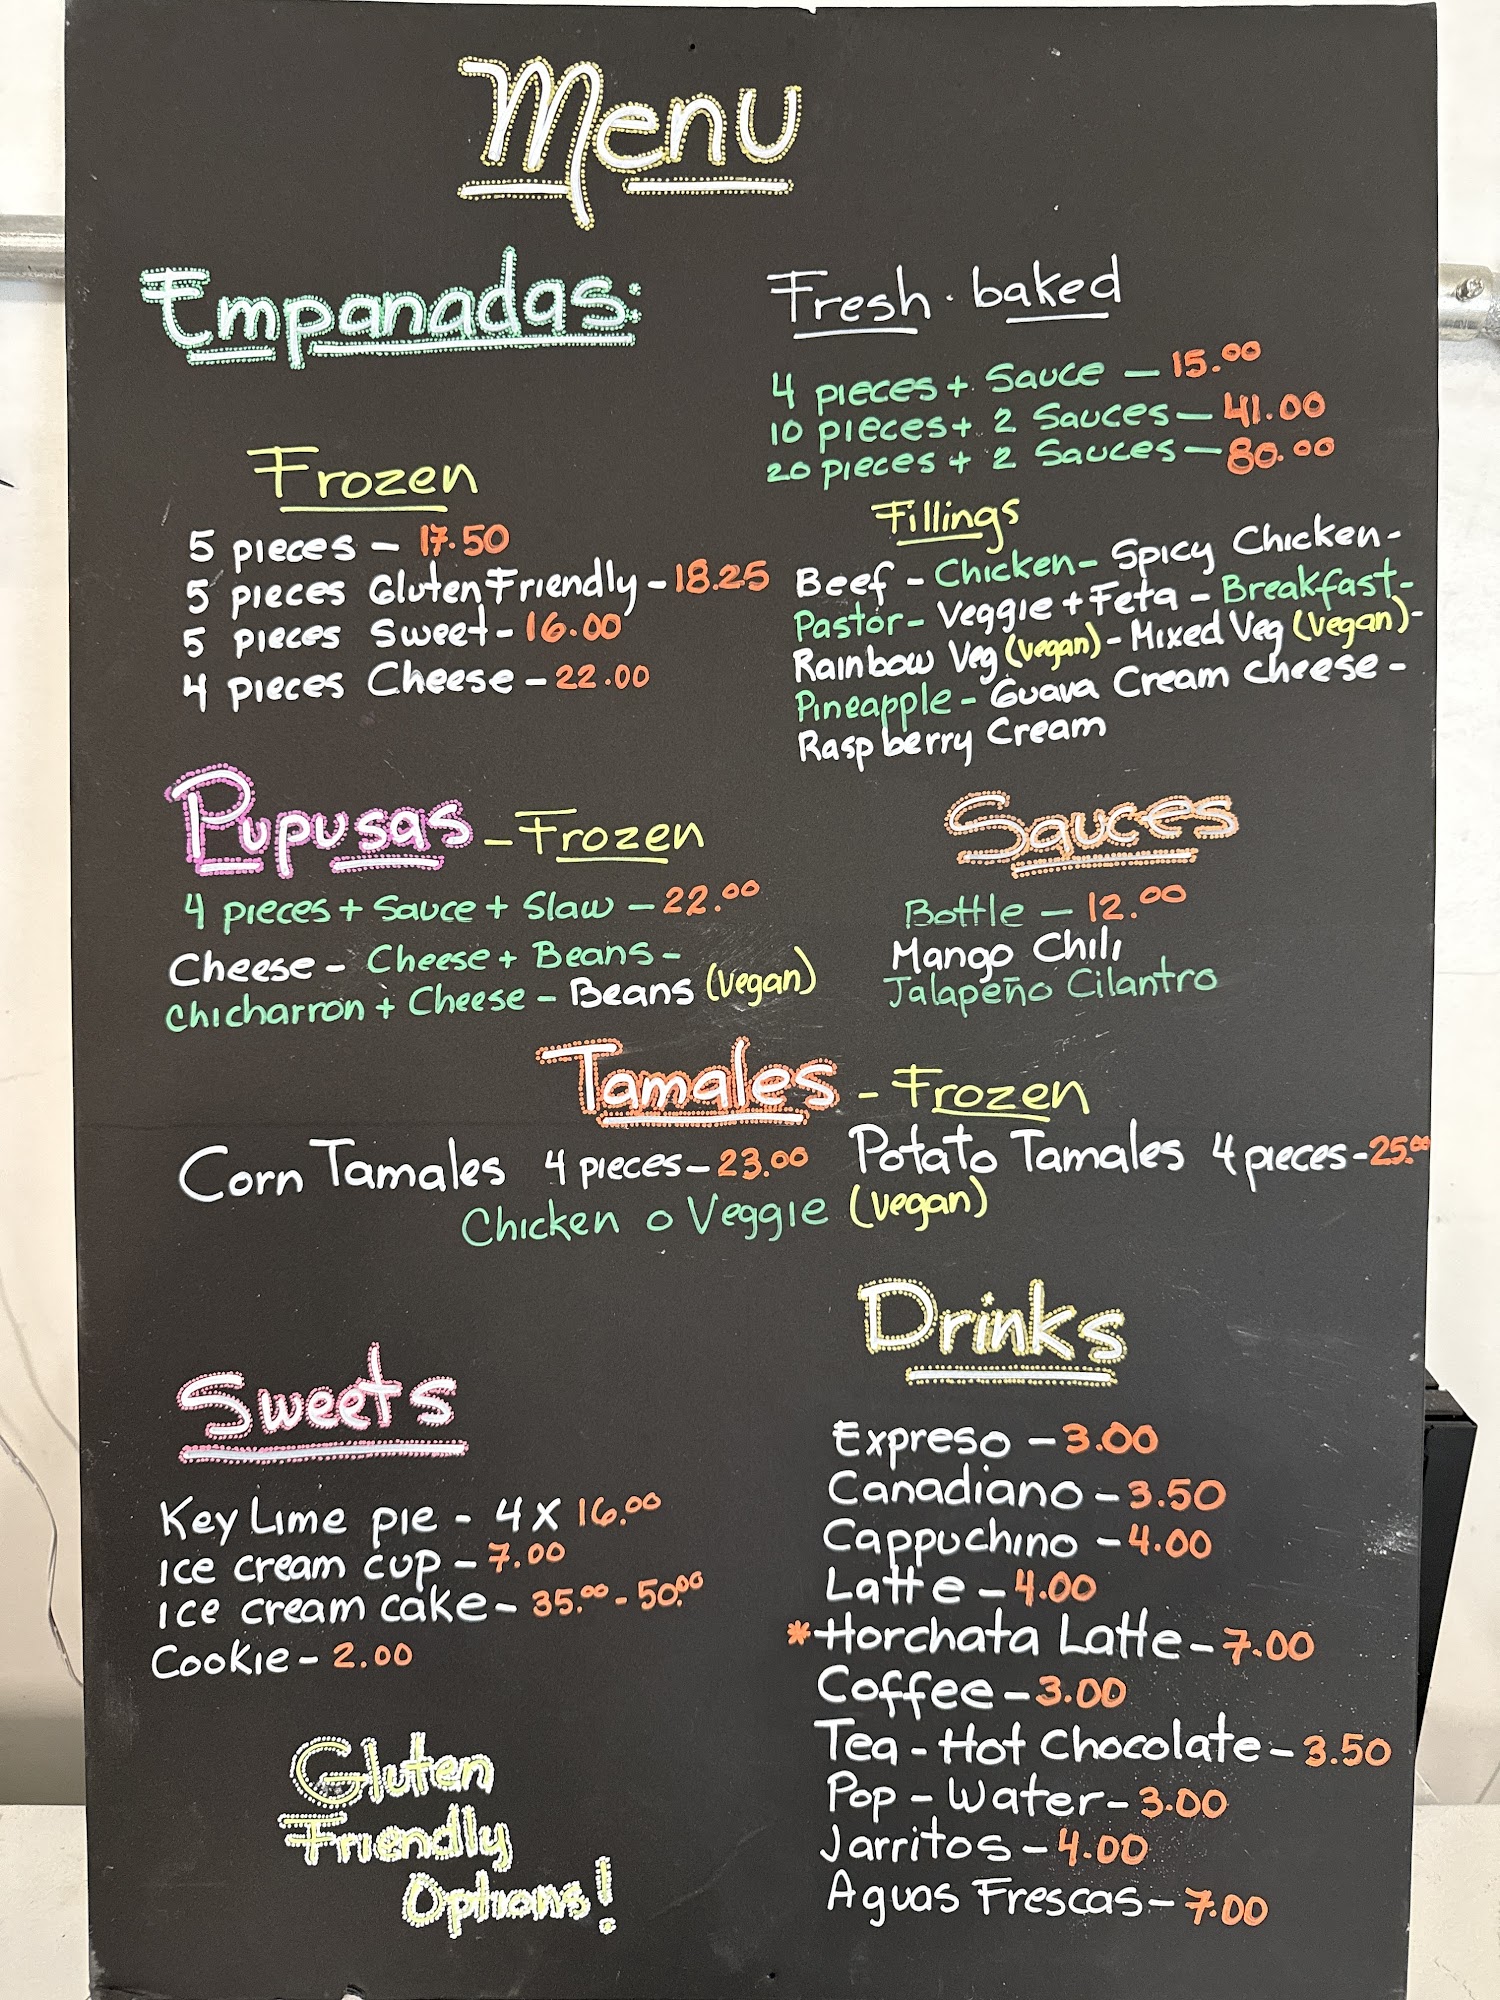 Menu
Empanadas:
Frozen
5 pieces - 17.50
5 pieces Gluten Friendly - 18.25
5 pieces Sweet - 16.00
4 pieces Cheese - 22.00
Fresh · baked
4 pieces + Sauce - 15.00
10 pieces + 2 Sauces - 41.00
20 pieces + 2 Sauces - 80.00
Fillings
Beef - Chicken - Spicy Chicken -
Pastor - Veggie + Feta - Breakfast -
Rainbow Veg (vegan) - Mixed Veg (vegan) -
Pineapple - Guava Cream Cheese -
Raspberry Cream
Pupusas - Frozen
4 pieces + Sauce + Slaw - 22.00
Cheese - Cheese + Beans -
Chicharron + Cheese - Beans (vegan)
Sauces
Bottle - 12.00
Mango Chili
Jalapeño Cilantro
Tamales - Frozen
Corn Tamales 4 pieces - 23.00 Potato Tamales 4 pieces - 25.00
Chicken o Veggie (vegan)
Sweets
Key Lime pie - 4 x 16.00
ice cream cup - 7.00
ice cream cake - 35.00 - 50.00
Cookie - 2.00
Gluten
Friendly
Options!
Drinks
Expreso - 3.00
Canadiano - 3.50
Cappuchino - 4.00
Latte - 4.00
*Horchata Latte - 7.00
Coffee - 3.00
Tea - Hot Chocolate - 3.50
Pop - Water - 3.00
Jarritos - 4.00
Aguas Frescas - 7.00